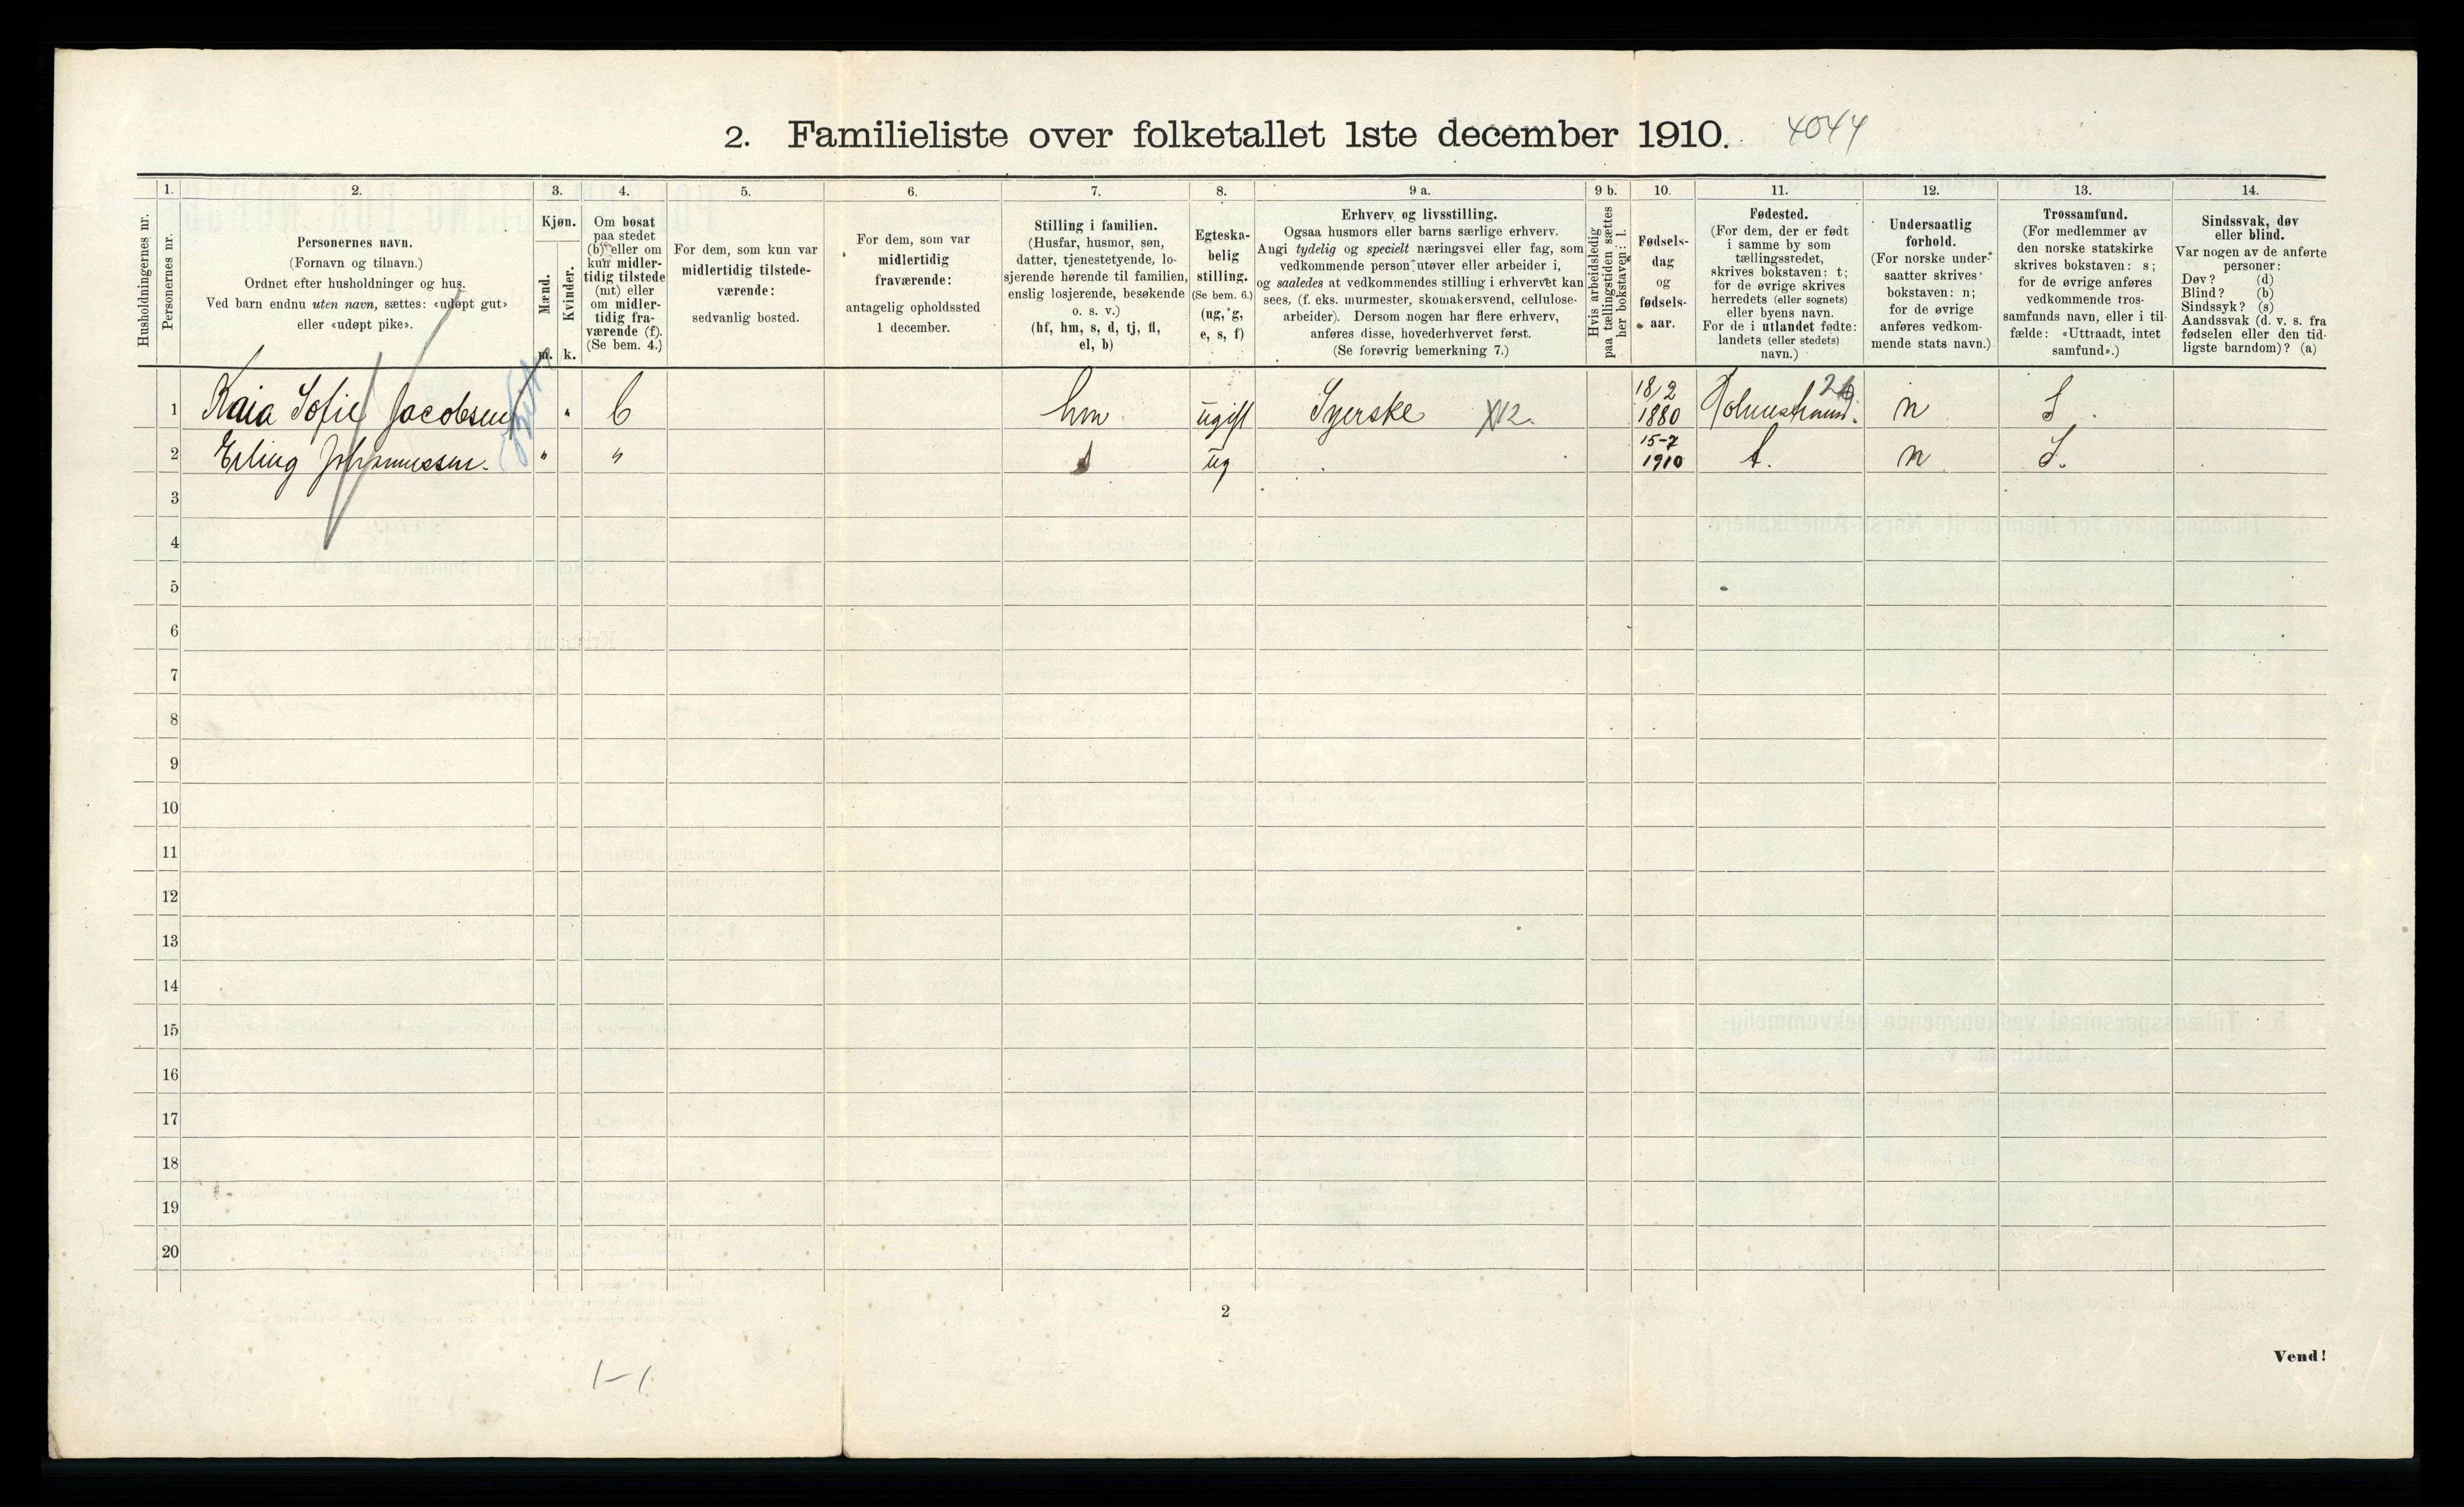 2. Familieliste over folketallet 1ste december 1910. 4044
Husholdningernes nr.
1.
Personernes nr.
2.
Personernes navn.
(Fornavn og tilnavn.)
Ordnet efter husholdninger og hus.
Ved barn endnu uten navn, sættes: «udøpt gut»
eller «udøpt pike».
3.
Kjøn.
Mænd.
m.
Kvinder.
k.
4.
Om bosat
paa stedet
(b) eller om
kun midler-
tidig tilstede
(mt) eller
om midler-
tidig fra-
værende (f).
(Se bem. 4.)
5.
For dem, som kun var
midlertidig tilstede-
værende:
sedvanlig bosted.
6.
For dem, som var
midlertidig
fraværende:
antagelig opholdssted
1 december.
7.
Stilling i familien.
(Husfar, husmor, søn,
datter, tjenestetyende, lo-
sjerende hørende til familien,
enslig losjerende, besøkende
o. s. v.)
(hf, hm, s, d, tj, fl,
el, b)
8.
Egteska-
belig
stilling.
(Se bem. 6.)
(ug, g,
e, s, f)
9 a.
Erhverv og livsstilling.
Ogsaa husmors eller barns særlige erhverv.
Angi tydelig og specielt næringsvei eller fag, som
vedkommende person utøver eller arbeider i,
og saaledes at vedkommendes stilling i erhvervet kan
sees, (f. eks. murmester, skomakersvend, cellulose-
arbeider). Dersom nogen har flere erhverv,
anføres disse, hovederhvervet først.
(Se forøvrig bemerkning 7.)
9 b.
Hvis arbeidsledig
paa tællingstiden sættes
her bokstaven: l.
10.
Fødsels-
dag
og
fødsels-
aar.
11.
Fødested.
(For dem, der er født
i samme by som
tællingsstedet,
skrives bokstaven: t;
for de øvrige skrives
herredets (eller sognets)
eller byens navn.
For de i utlandet fødte:
landets (eller stedets)
navn.)
12.
Undersaatlig
forhold.
(For norske under-
saatter skrives
bokstaven: n;
for de øvrige
anføres vedkom-
mende stats navn.)
13.
Trossamfund.
(For medlemmer av
den norske statskirke
skrives bokstaven: s;
for de øvrige anføres
vedkommende tros-
samfunds navn, eller i til-
fælde: «Uttraadt, intet
samfund».)
14.
Sindssvak, døv
eller blind.
Var nogen av de anførte
personer:
Døv? (d)
Blind? (b)
Sindssyk? (s)
Aandssvak (d. v. s. fra
fødselen eller den tid-
ligste barndom)? (a)
1 Kaia Sofie Jacobsen " b hm ugift Syerske 18/2 1880 Holmestrand. n S
2 Erling Johannessen. " " s ug 15-7 1910 t. n S.
3
4
5
6
7
8
9
10
11
12
13
14
15
16
17
18
19
20
2
Vend!
1-1